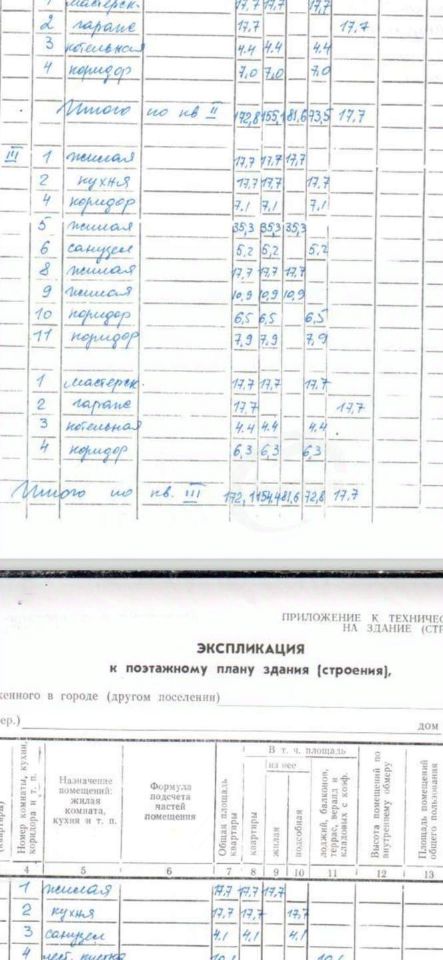 1 мастерск. 17,7 17,7 17,7
2 гараж 17,7 17,7
3 котельная 4.4 4.4 4.4
4 коридор 7,0 7,0 7,0
Итого по кв II 172,8 155,1 81,6 73,5 17,7
III 1 жилая 17,7 17,7 17,7
2 кухня 17,7 17,7 17,7
4 коридор 7,1 7,1 7,1
5 жилая 35,3 35,3 35,3
6 санузел 5,2 5,2 5,2
8 жилая 17,7 17,7 17,7
9 жилая 10,9 10,9 10,9
10 коридор 6,5 6,5 6,5
11 коридор 7,9 7,9 7,9
1 мастерск. 17,7 17,7 17,7
2 гараж 17,7 17,7
3 котельная 4.4 4.4 4.4
4 коридор 6,3 6,3 6,3
Итого по кв. III 172,1 154,4 81,6 72,8 17.7
ПРИЛОЖЕНИЕ К ТЕХНИЧЕС
НА ЗДАНИЕ (СТР
ЭКСПЛИКАЦИЯ
к поэтажному плану здания (строения),
женного в городе (другом поселении)
ер.) дом
(квартиры)
Номер комнаты, кухни, коридора и т. п.
Назначение
помещений:
жилая
комната,
кухня и т. п.
Формула
подсчета
частей
помещения
Общая площадь квартиры
В т. ч. площадь
квартиры
из нее
жилая
подсобная
лоджий, балконов, террас, веранд и кладовых с коэф.
Высота помещений по внутреннему обмеру
Площадь помещений общего пользования
4 5 6 7 8 9 10 11 12 13
1 жилая 17,7 17,7 17,7
2 кухня 17,7 17,7 17,7
3 санузел 4,1 4,1 4,1
4 лест. клетка